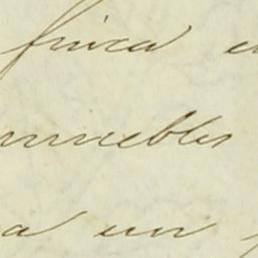 finca
muebles
a un